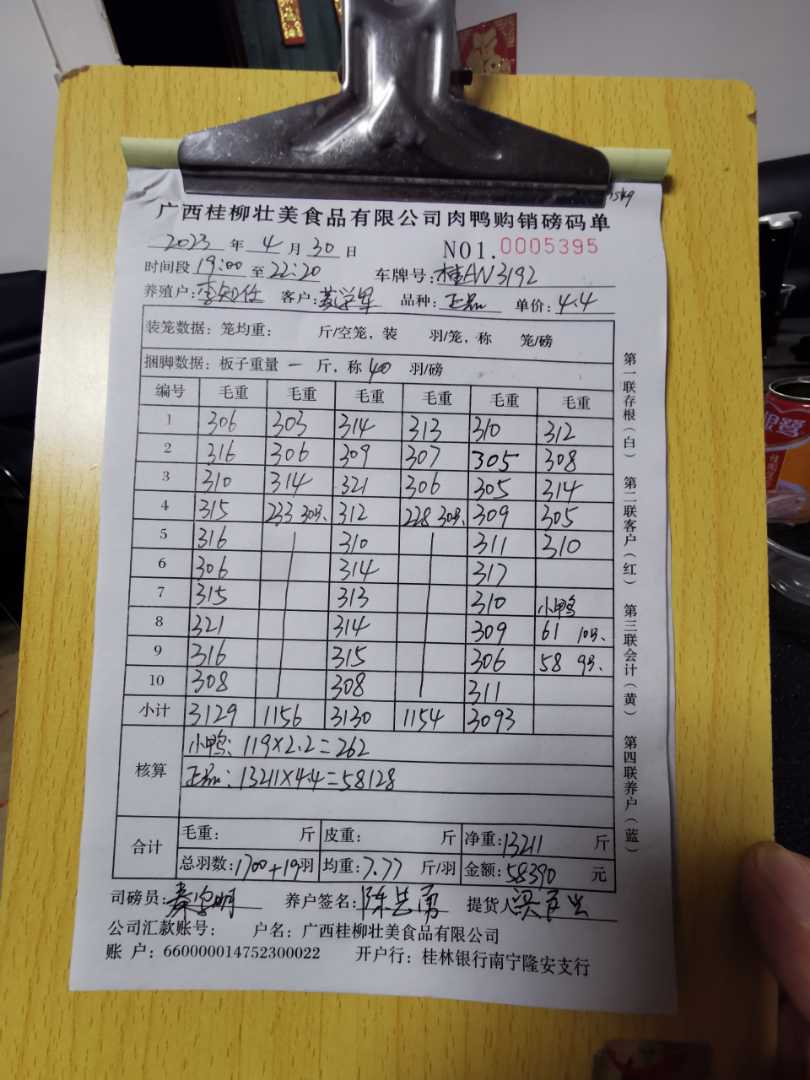 广西桂柳壮美食品有限公司肉鸭购销磅码单
2023 年 4 月 30 日 NO1.0005395
时间段 19:00 至 22:20 车牌号: 桂AW3192
养殖户: 客户: 黄学军 品种: 正品 单价: 4.4
装笼数据: 笼均重: 斤/空笼, 装 羽/笼, 称 笼/磅
捆脚数据: 板子重量 一 斤, 称 40 羽/磅
编号 毛重 毛重 毛重 毛重 毛重 毛重
1 306 303 314 313 310 312
2 316 306 309 307 305 308
3 310 314 321 306 305 314
4 315 233 30羽. 312 228 30羽. 309 305
5 316 310 311 310
6 306 314 317
7 315 313 310 小鸭
8 321 314 309 61 10羽.
9 316 315 306 58 9羽.
10 308 308 311
小计 3129 1156 3130 1154 3093
核算
小鸭: 119×2.2=262
正品: 13211×4.4=58128
合计
毛重: 斤 皮重: 斤 净重: 13211 斤
总羽数: 1700+19羽 均重: 7.77 斤/羽 金额: 58390 元
司磅员: 养户签名: 提货人
公司汇款账号: 户名: 广西桂柳壮美食品有限公司
账 户: 660000014752300022 开户行: 桂林银行南宁隆安支行
第一联存根(白) 第二联客户(红) 第三联会计(黄) 第四联养户(蓝)